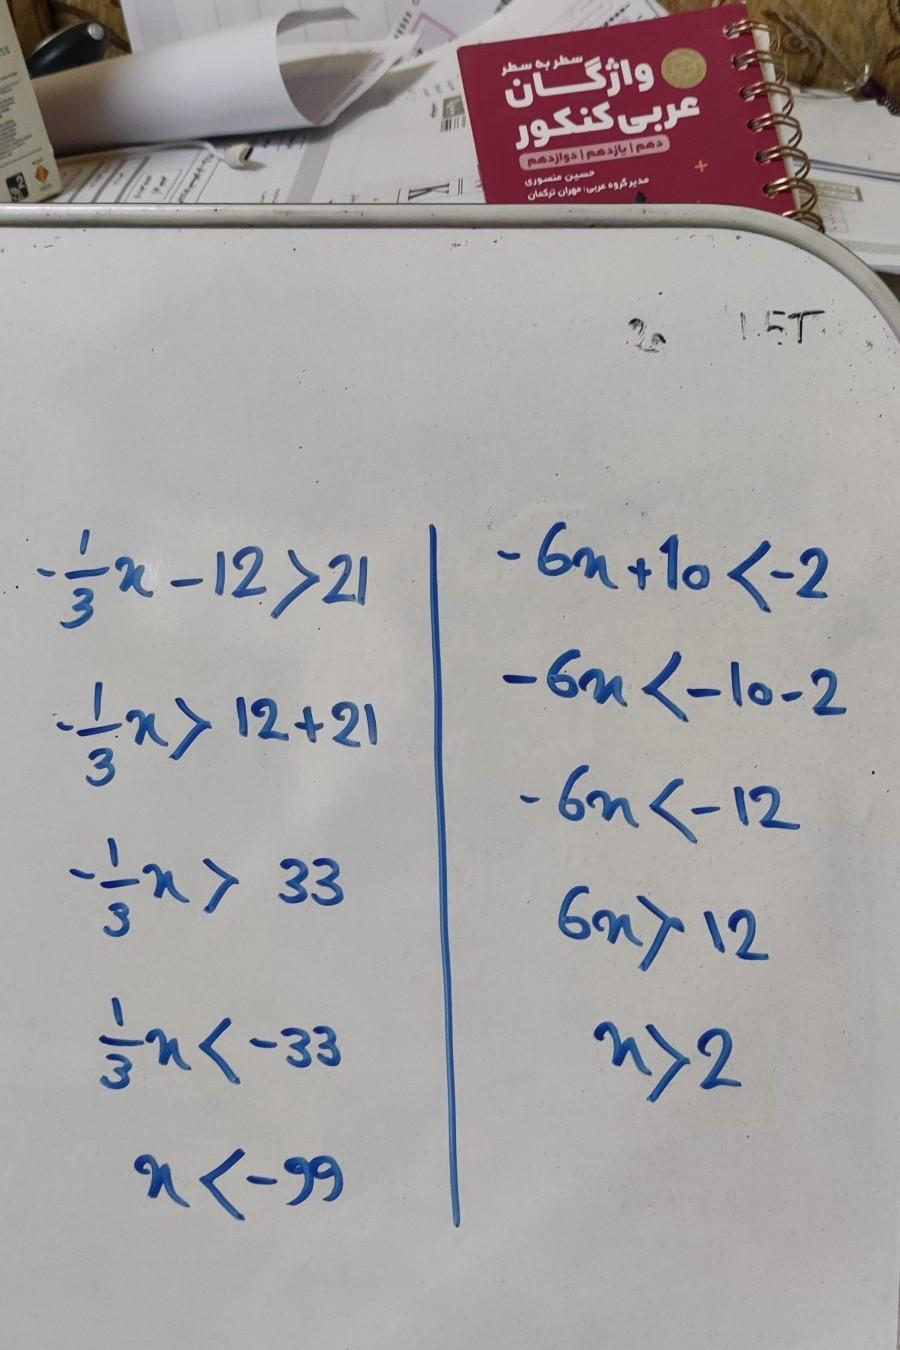 سطر به سطر
واژگان
عربی کنکور
دهم | یازدهم | دوازدهم
حسین منصوری
مدیر گروه عربی: مهران ترکمان
1.5T
-1/3x - 12 > 21
-1/3x > 12 + 21
-1/3x > 33
1/3x < -33
x < -99
-6x + 10 < -2
-6x < -10 - 2
-6x < -12
6x > 12
x > 2